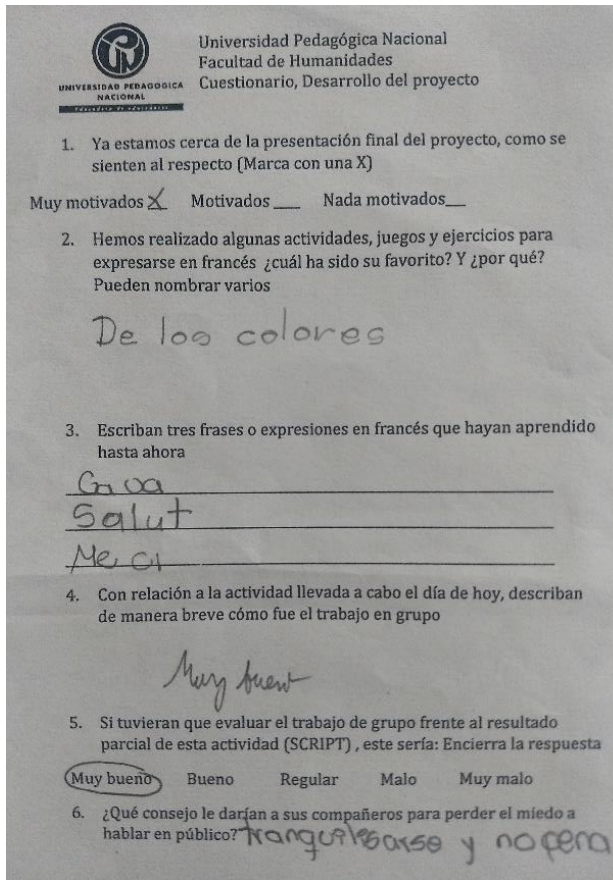 Universidad Pedagógica Nacional
Facultad de Humanidades
Cuestionario, Desarrollo del proyecto
UNIVERSIDAD PEDAGOGICA
NACIONAL
1. Ya estamos cerca de la presentación final del proyecto, como se
sienten al respecto (Marca con una X)
Muy motivados X Motivados ___ Nada motivados___
2. Hemos realizado algunas actividades, juegos y ejercicios para
expresarse en francés ¿cuál ha sido su favorito? Y ¿por qué?
Pueden nombrar varios
De los colores
3. Escriban tres frases o expresiones en francés que hayan aprendido
hasta ahora
Ca va
Salut
Me ci
4. Con relación a la actividad llevada a cabo el día de hoy, describan
de manera breve cómo fue el trabajo en grupo
Muy buent
5. Si tuvieran que evaluar el trabajo de grupo frente al resultado
parcial de esta actividad (SCRIPT) , este sería: Encierra la respuesta
Muy bueno Bueno Regular Malo Muy malo
6. ¿Qué consejo le darían a sus compañeros para perder el miedo a
hablar en público? tranquilesarse y no pena